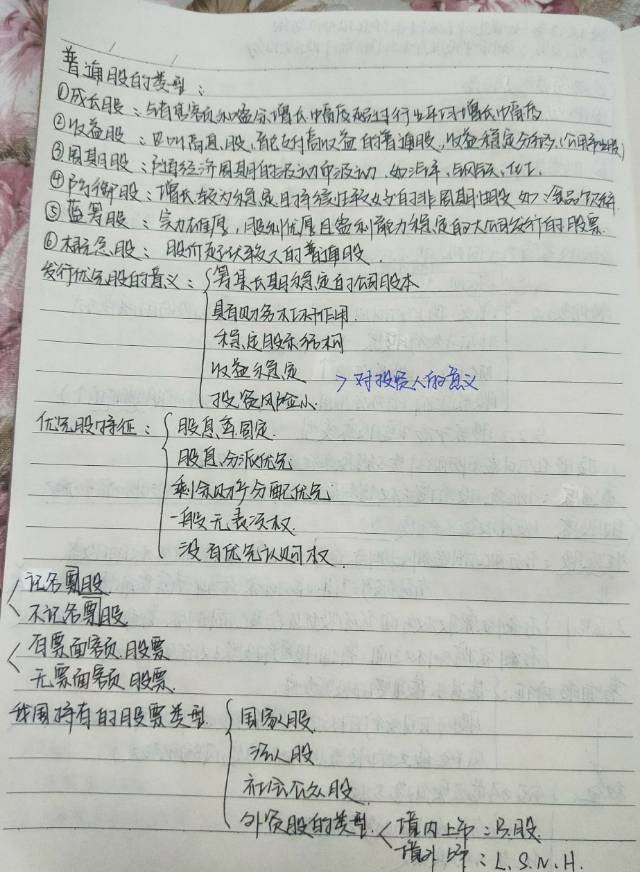 普通股的类型：
①成长股：与有息额和收益分增长幅度超过行业平均增长幅度
②收益股：也叫高息股，能支付高收益的普通股，收益稳定分红多（公用事业股）
③周期股：随着经济周期的波动而波动，如汽车，钢铁，化工．
④防御股：增长较为稳定且持续性较好的非周期性股 如：食品饮料
⑤蓝筹股：实力雄厚，股利优厚且盈利能力稳定的大公司发行的股票
⑥概念股：股价起伏较大的普通股．
发行优先股的意义：筹集长期稳定的公司股本
具有财务杠杆作用．
稳定股东结构
收益稳定
>对投资人的意义
投资风险小．
优先股特征：股息率固定．
股息分派优先
剩余财产分配优先
一般无表决权．
没有优先认购权．
记名票股
不记名票股
有票面额页股票
无票面额页股票．
我国特有的股票类型 国家股
法人股
社会公众股．
外资股的类型．境内上市：B.股．
境外上市：L.S.N.H.